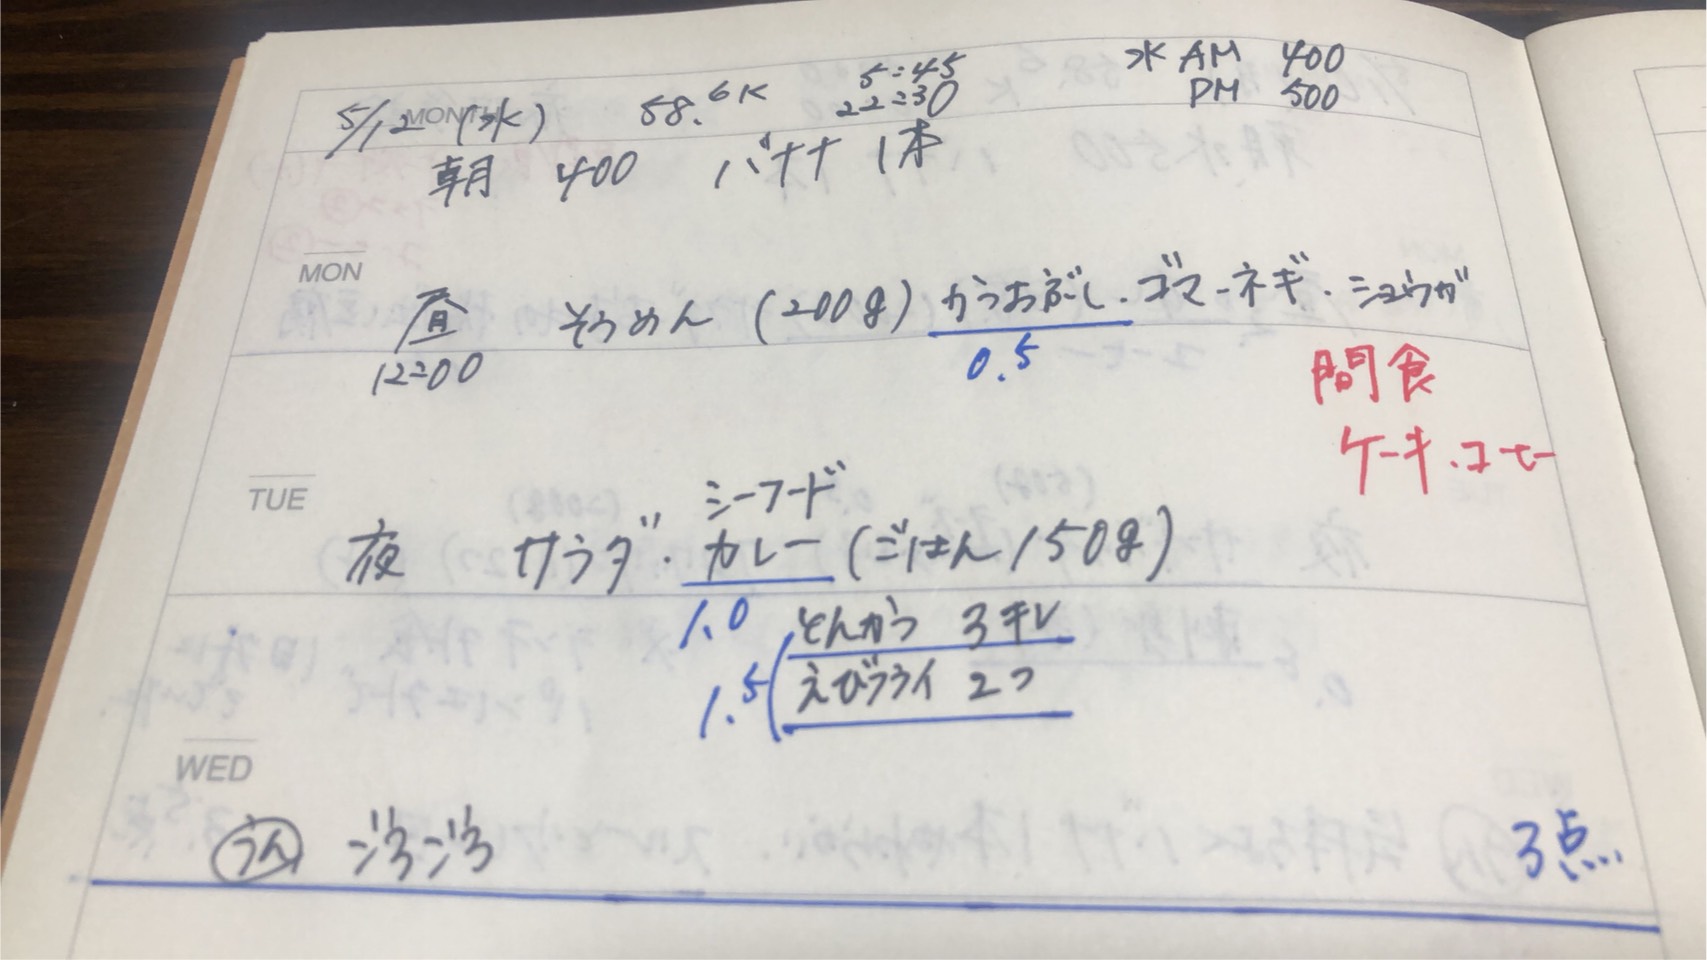 5/12 (水) 58.6K 5:45 水 AM 400
22:30 PM 500
MONTH
朝 400 バナナ 1本
MON
昼 そうめん (200g) かつおぶし・ゴマ・ネギ・ショウガ
12:00 0.5
間食
ケーキ・コーヒー
TUE
シーフード
夜 サラダ・カレー (ごはん150g)
1.0 とんかつ 3キレ
1.5 えびフライ 2つ
WED
うん ゴロゴロ
3点